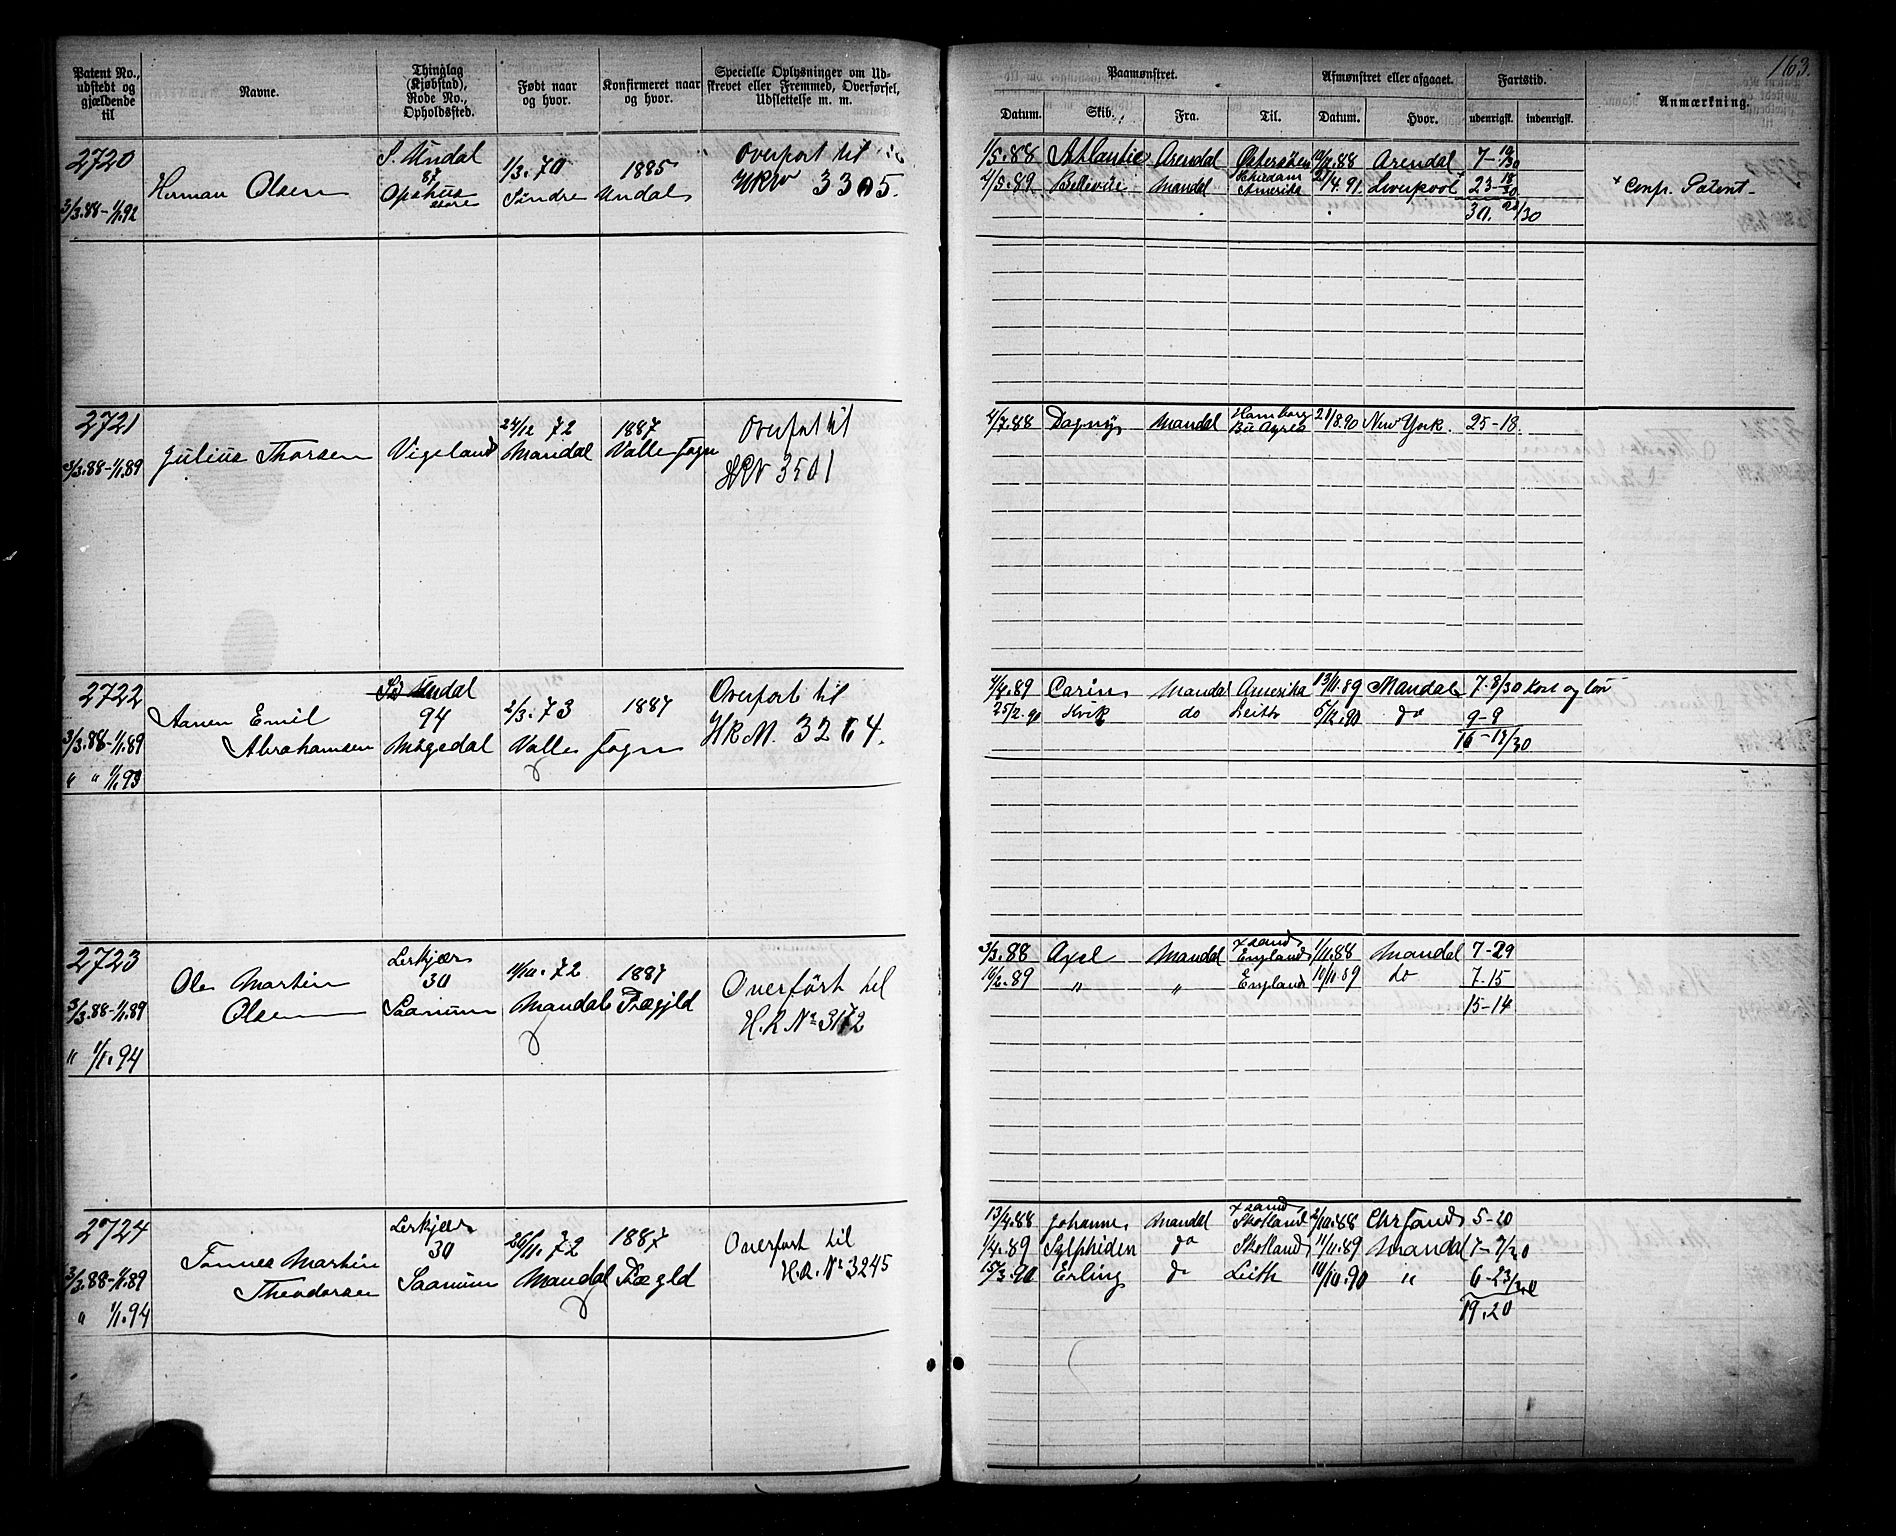 163.
Patent No., udstedt og gjældende til
Navne.
Thinglag (Kjøbstad), Rode No., Opholdssted.
Født naar og hvor.
Konfirmeret naar og hvor.
Specielle Oplysninger om Udskrevet eller Fremmed, Overførsel, Udslettelse m. m.
Paamønstret.
Afmønstret eller afgaaet.
Fartstid.
Anmærkning.
Datum. Skib. Fra. Til. Datum. Hvor. udenrigsk. indenrigsk.
2720
3/3.88-1/1.92
Herman Olsen
S. Undal
87
Opsahus
store
1/3.70
Söndre Undal
1885
Overført til
HRN 3305.
1/5.88 Atlantic Arendal Østersøen 88 Arendal 7-
4/5.89 Bellevue Mandal Amerika 21/4.91. Liverpool + 23-
30.
+ Conf. Patent-
2721
3/3.88-1/1.89
Julius Thorsen
Vigeland
24/12 72
Mandal
1887
Valle sogn
Overført til
HRN 3501
4/7.88 Dagny Mandal Hamborg Bu Ayres 21/8.90 New York. 25-18.
2722
3/3.88-1/1.89
" " 1/1.93
Aanen Emil
Abrahamsen
Sö Undal
94
Møgedal
2/3.73
1887
Valle sogn
Overført til
HRN. 3264.
4/4.89 Carin Mandal Amerika 13/11.89 Mandal 7.8/30
25/2.90 Kvik do Leith 5/12.90 do 9-9
16-17/30
2723
3/3.88-1/1.89
" 1/1.94
Ole Martin
Olsen
Lerkjær
30
Saanum
11/10.72
Mandal
1887
Prægjld
Overført til
H.R No 3172
3/3.88 Axel Mandal x sand England 1/11.88 Mandal 7-29
16/2.89 " " England 10/11.89 do 7-15
15-14
2724
3/3.88-1/1.89
" 1/1.94
Tønnes Martin
Theodorsen
Lerkjær
30
Saanum
26/11.72
Mandal
1887
Prægld
Overført til
H.R. No 3245
13/4.88 Johanne Mandal x sand Skotland 2/10.88 Chrsand 5-20
1/4.89 Sylphiden do Skotland 11/11.89 Mandal 7-7/30
15/3.90 Erling do Leith 10/10.90 " 6-23/30
19.20